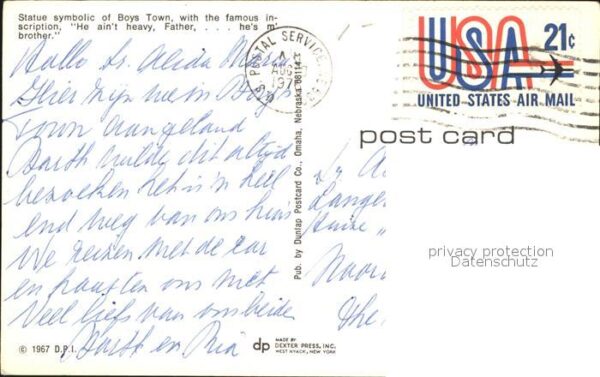 Statue symbolic of Boys Town, with the famous in-
scription, "He ain't heavy, Father, . . . . he's m'
brother."
Hallo Sr. Alida Maria
zijn we in Boys
Town
Barth wilde dit altijd
bezoeken het is 'n heel
end weg van ons huis
We reizen met de car
en ons met
Veel liefs van ons beiden
Barth en Ria
© 1967 D.P.I.
Pub. by Dunlap Postcard Co., Omaha, Nebraska 68114
dp
MADE BY
DEXTER PRESS, INC.
WEST NYACK, NEW YORK
U.S. POSTAL SERVICE
AUG
197
USA 21¢
UNITED STATES AIR MAIL
post card
Sr. A
Langen
Huize "
Noor
The
privacy protection
Datenschutz